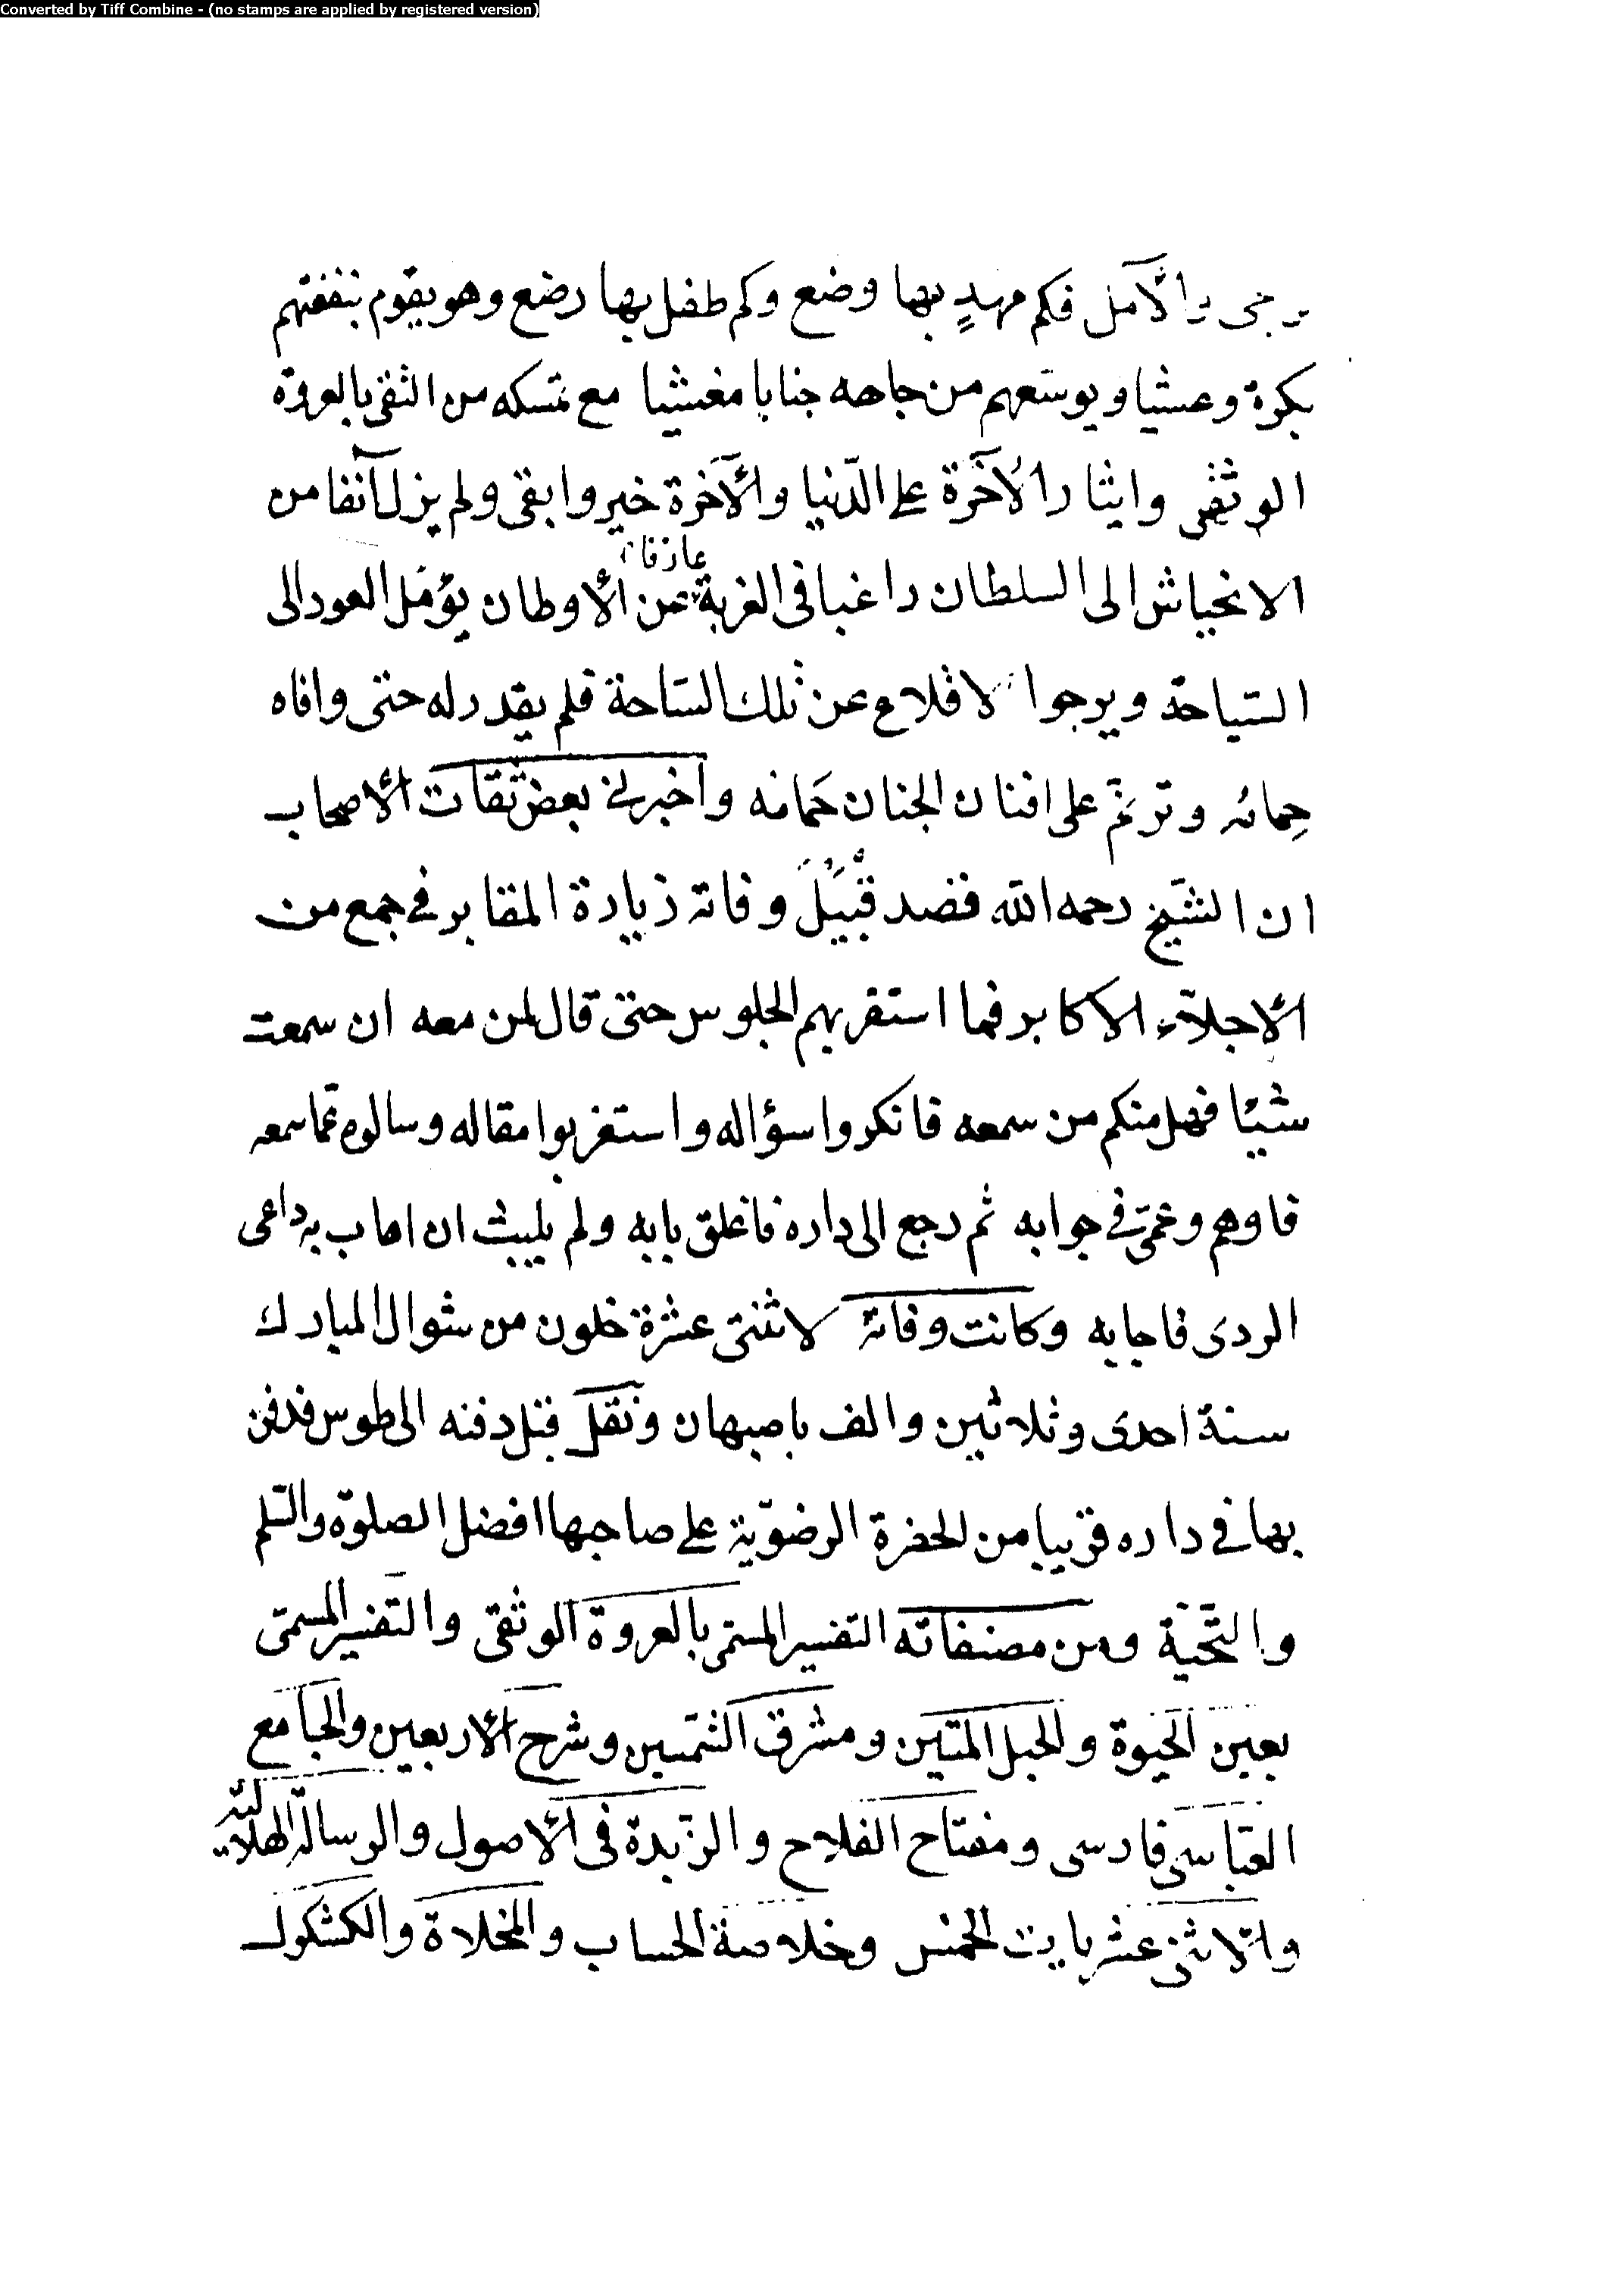 Converted by Tiff Combine - (no stamps are applied by registered version)
والآمل فكم مهدٍ بها وضع وكم طفل بها رضع وهو يقوم بنفقتهم
بكرة وعشيا ويوسعهم من جاهه جنابا مغشيا مع تمسكه من التقى بالعروة
الوثقى وايثار الآخرة على الدّنيا والآخرة خير وابقى ولم يزل آنفا من
الانحياش الى السلطان راغبا فى الغربة عن الأوطان يؤمّل العود الى
عازفا
السّياحة ويرجوا الاقلاع عن تلك السّاحة فلم يقدر له حتى وافاه
حِمامه وترنّم على افنان الجنان حَمامه واخبرنى بعض ثقات الأصحاب
ان الشّيخ رحمه الله قصد قُبَيْلَ وفاته زيارة المقابر في جمع من
الأجلّاء الاكابر فما استقر بهم الجلوس حتى قال لمن معه ان سمعت
شيئا فهل منكم من سمعه فانكروا سؤاله واستغربوا مقاله وسالوه عمّا سمعه
فاوهم وعمّى في جوابه ثم رجع الى داره فاغلق بابه ولم يلبث ان اهاب به داعى
الردى فاجابه وكانت وفاته لاثنتى عشرة خلون من شوال المبارك
سنة احدى وثلاثين والف باصبهان ونقل قبل دفنه الى طوس فدفن
بها في داره قريبا من الحضرة الرضويّة على صاحبها افضل الصلوة والسّلم
والتّحيّة ومن مصنفاته التفسير المسمّى بالعروة الوثقى والتّفسير المسمّى
بعين الحيوة والحبل المتين ومشرق الشّمسين وشرح الأربعين والجامع
العبّاسى فارسى ومفتاح الفلاح والزّبدة فى الأصول والرسالة الهلالية
والاثنى عشريات الخمس وخلاصة الحساب والمخلاة والكشكول